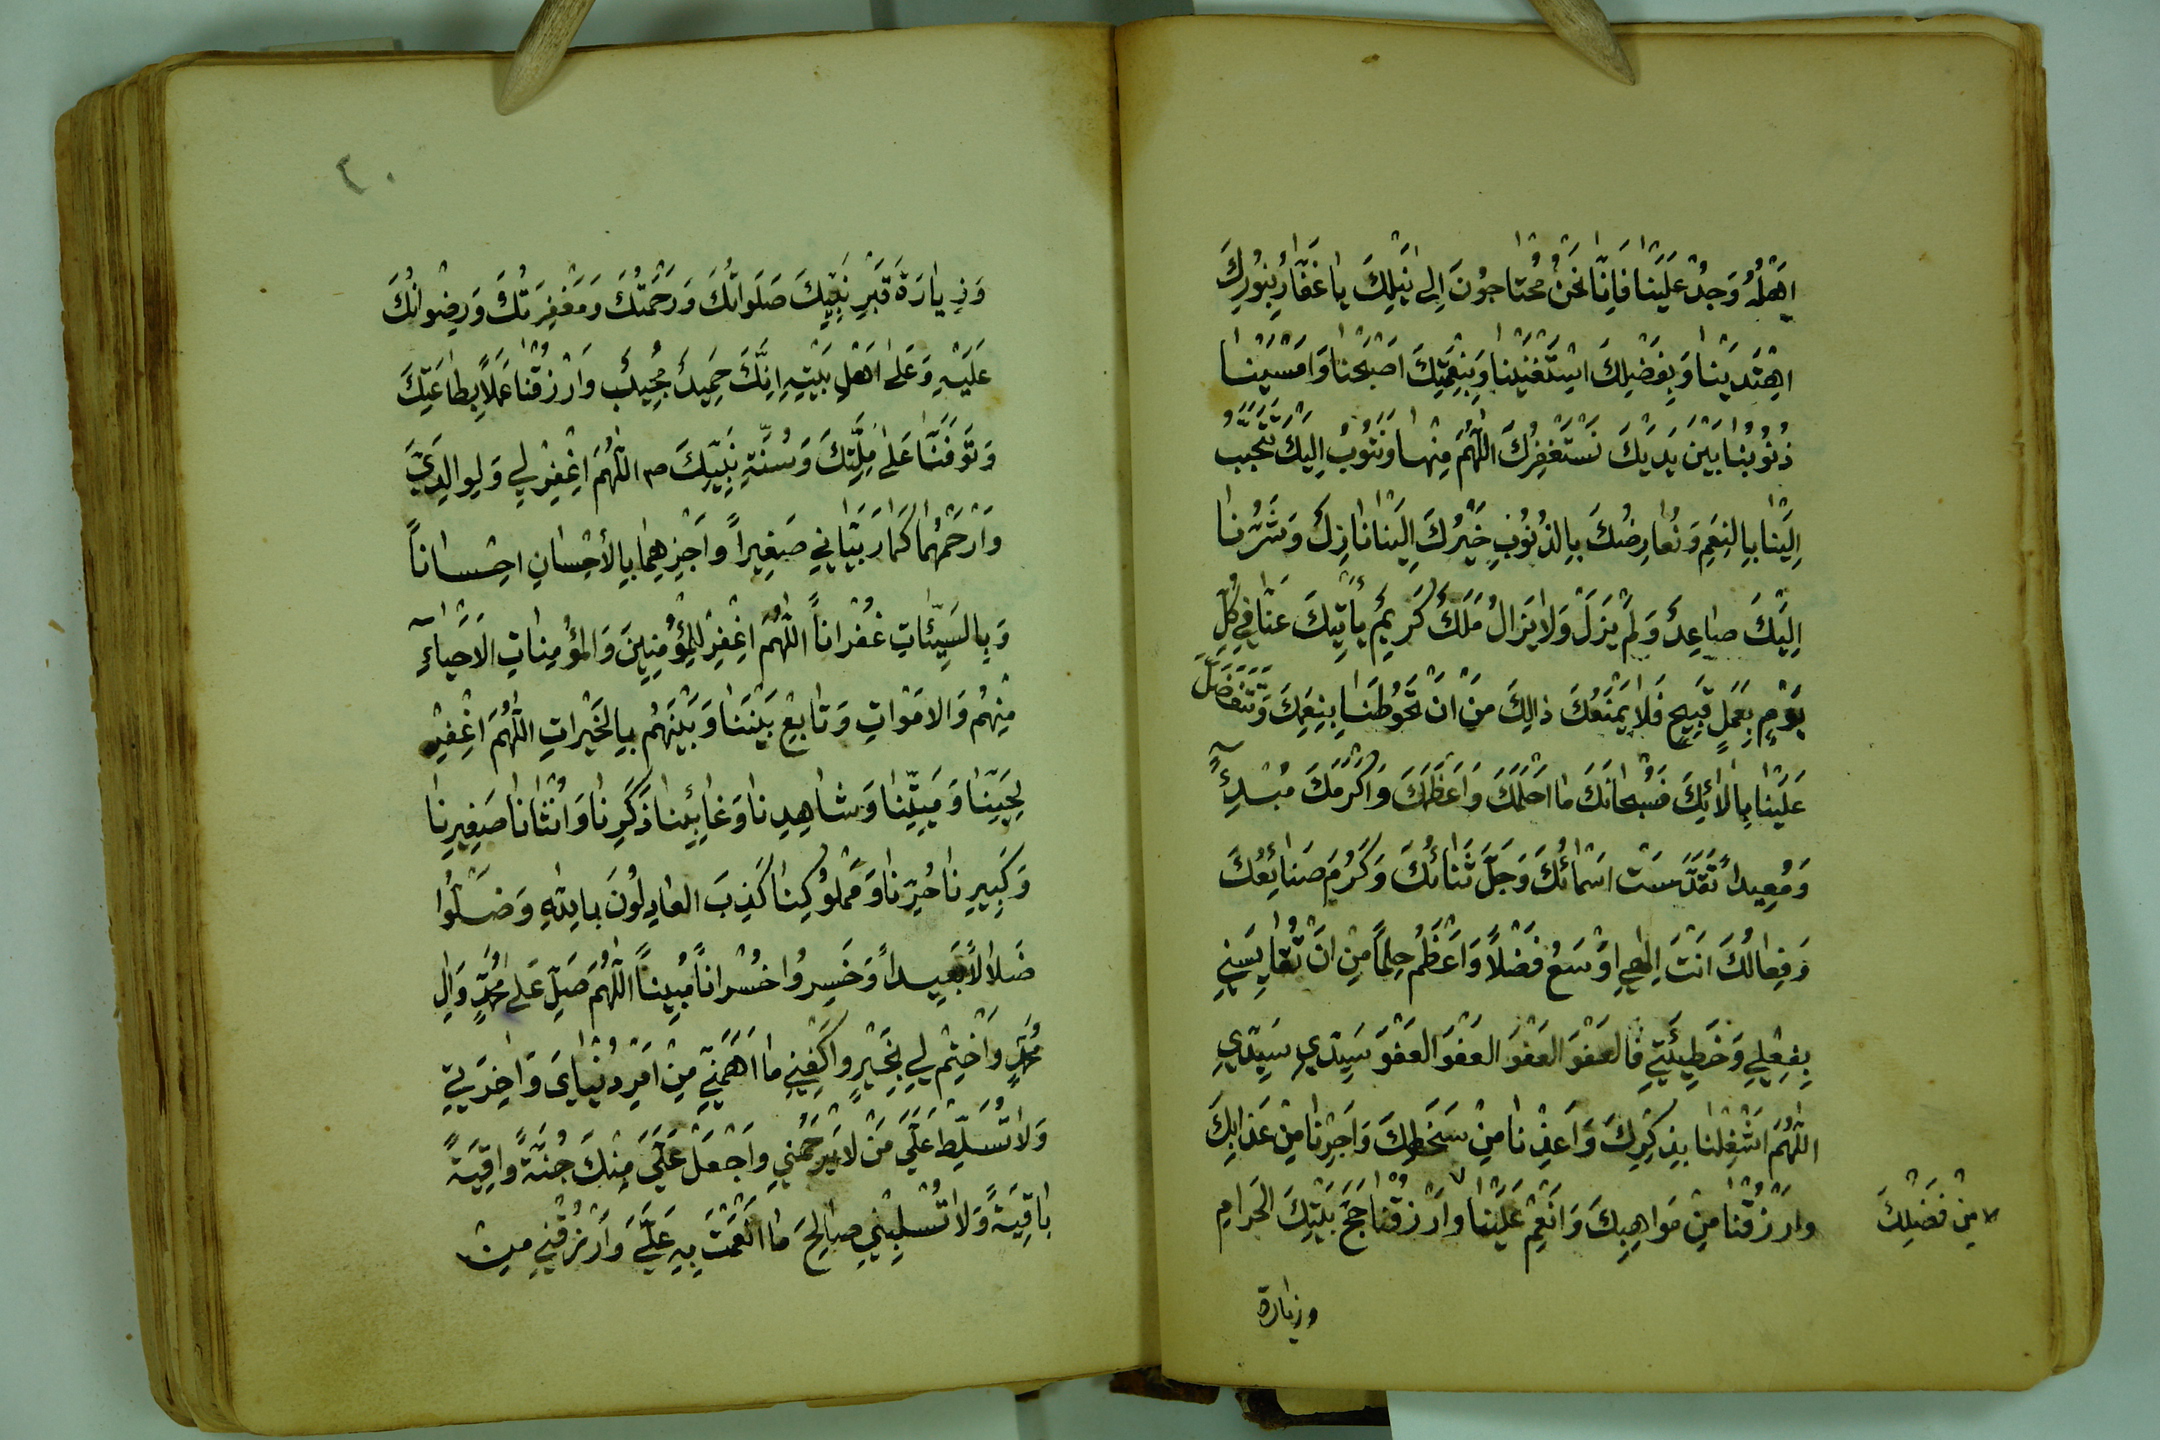 اَهْلُهُ وَجُدْ عَلَيْنٰا فَاِنّٰا نَحْنُ مُحْتٰاجُونَ اِلىٰ نَيْلِكَ يٰا غَفّٰارُ بِنُورِكَ
اهْتَدَيْنٰا وَبِفَضْلِكَ اسْتَغْنَيْنٰا وَبِنِعْمَتِكَ اَصْبَحْنٰا وَاَمْسَيْنٰا
ذُنُوبُنٰا بَيْنَ يَدَيْكَ نَسْتَغْفِرُكَ اللّٰهُمَّ مِنْهٰا وَنَتُوبُ اِلَيْكَ تَتَحَبَّبُ
اِلَيْنٰا بِالنِّعَمِ وَنُعٰارِضُكَ بِالذُّنُوبِ خَيْرُكَ اِلَيْنٰا نٰازِلٌ وَشَرُّنٰا
اِلَيْكَ صٰاعِدٌ وَلَمْ يَزَلْ وَلٰا يَزٰالُ مَلَكٌ كَرِيمٌ يَأْتِيكَ عَنّٰا فِي كُلِّ
يَوْمٍ بِعَمَلٍ قَبِيحٍ فَلٰا يَمْنَعُكَ ذٰلِكَ مِنْ اَنْ تَحُوطَنٰا بِنِعَمِكَ وَتَتَفَضَّلَ
عَلَيْنٰا بِاٰلٰائِكَ فَسُبْحٰانَكَ مٰا اَحْلَمَكَ وَاَعْظَمَكَ وَاَكْرَمَكَ مُبْدِئًا
وَمُعِيدًا تَقَدَّسَتْ اَسْمٰائُكَ وَجَلَّ ثَنٰائُكَ وَكَرُمَ صَنٰائِعُكَ
وَفِعٰالُكَ اَنْتَ اِلٰهِي اَوْسَعُ فَضْلًا وَاَعْظَمُ حِلْمًا مِنْ اَنْ تُقٰايِسَنِي
بِفِعْلِي وَخَطِيئَتِي فَالعَفْوَ العَفْوَ العَفْوَ العَفْوَ سَيِّدِي سَيِّدِي
اللّٰهُمَّ اشْغَلْنٰا بِذِكْرِكَ وَاَعِذْنٰا مِنْ سَخَطِكَ وَاَجِرْنٰا مِنْ عَذٰابِكَ
وارْزُقْنٰا مِنْ مَوٰاهِبِكَ وَاَنْعِمْ عَلَيْنٰا وَارْزُقْنٰا حَجَّ بَيْتِكَ الحَرٰامِ
مِنْ فَضْلِكَ
وزيٰارة
٢٠
وَزِيٰارَةَ قَبْرِ نَبِيِّكَ صَلَوٰاتُكَ وَرَحْمَتُكَ وَمَغْفِرَتُكَ وَرِضْوٰانُكَ
عَلَيْهِ وَعَلىٰ اَهْلِ بَيْتِهِ اِنَّكَ حَمِيدٌ مُجِيبٌ وَارْزُقْنٰا عَمَلًا بِطٰاعَتِكَ
وَتَوَفَّنٰا عَلىٰ مِلَّتِكَ وَسُنَّةِ نَبِيِّكَ ص اللّٰهُمَّ اغْفِرْ لِي وَلِوٰالِدَيَّ
وَارْحَمْهُمٰا كَمٰا رَبَّيٰانِي صَغِيرًا وَاجْزِهِمٰا بِالاِحْسٰانِ اِحْسٰانًا
وَبِالسَّيِّئٰاتِ غُفْرٰانًا اللّٰهُمَّ اغْفِرْ لِلْمُؤْمِنِينَ وَالمُؤْمِنٰاتِ الاَحْيٰاءِ
مِنْهُمْ وَالاَمْوٰاتِ وَتٰابِعْ بَيْنَنٰا وَبَيْنَهُمْ بِالخَيْرٰاتِ اللّٰهُمَّ اغْفِرْ
لِحَيِّنٰا وَمَيِّتِنٰا وَشٰاهِدِنٰا وَغٰائِبِنٰا ذَكَرِنٰا وَاُنْثٰانٰا صَغِيرِنٰا
وَكَبِيرِنٰا حُرِّنٰا وَمَمْلُوكِنٰا كَذِبَ العٰادِلُونَ بِاللّٰهِ وَضَلُّوا
ضَلٰالًا بَعِيدًا وَخَسِرُوا خُسْرٰانًا مُبِينًا اللّٰهُمَّ صَلِّ عَلىٰ مُحَمَّدٍ وَاٰلِ
مُحَمَّدٍ وَاخْتِمْ لِي بِخَيْرٍ وَاكْفِنِي مٰا اَهَمَّنِي مِنْ اَمْرِ دُنْيٰايَ وَاٰخِرَتِي
وَلٰا تُسَلِّطْ عَلَيَّ مَنْ لٰا يَرْحَمُنِي وَاجْعَلْ عَلَيَّ مِنْكَ جُنَّةً وٰاقِيَةً
بٰاقِيَةً وَلٰا تَسْلُبْنِي صٰالِحَ مٰا اَنْعَمْتَ بِهِ عَلَيَّ وَارْزُقْنِي مِنْ